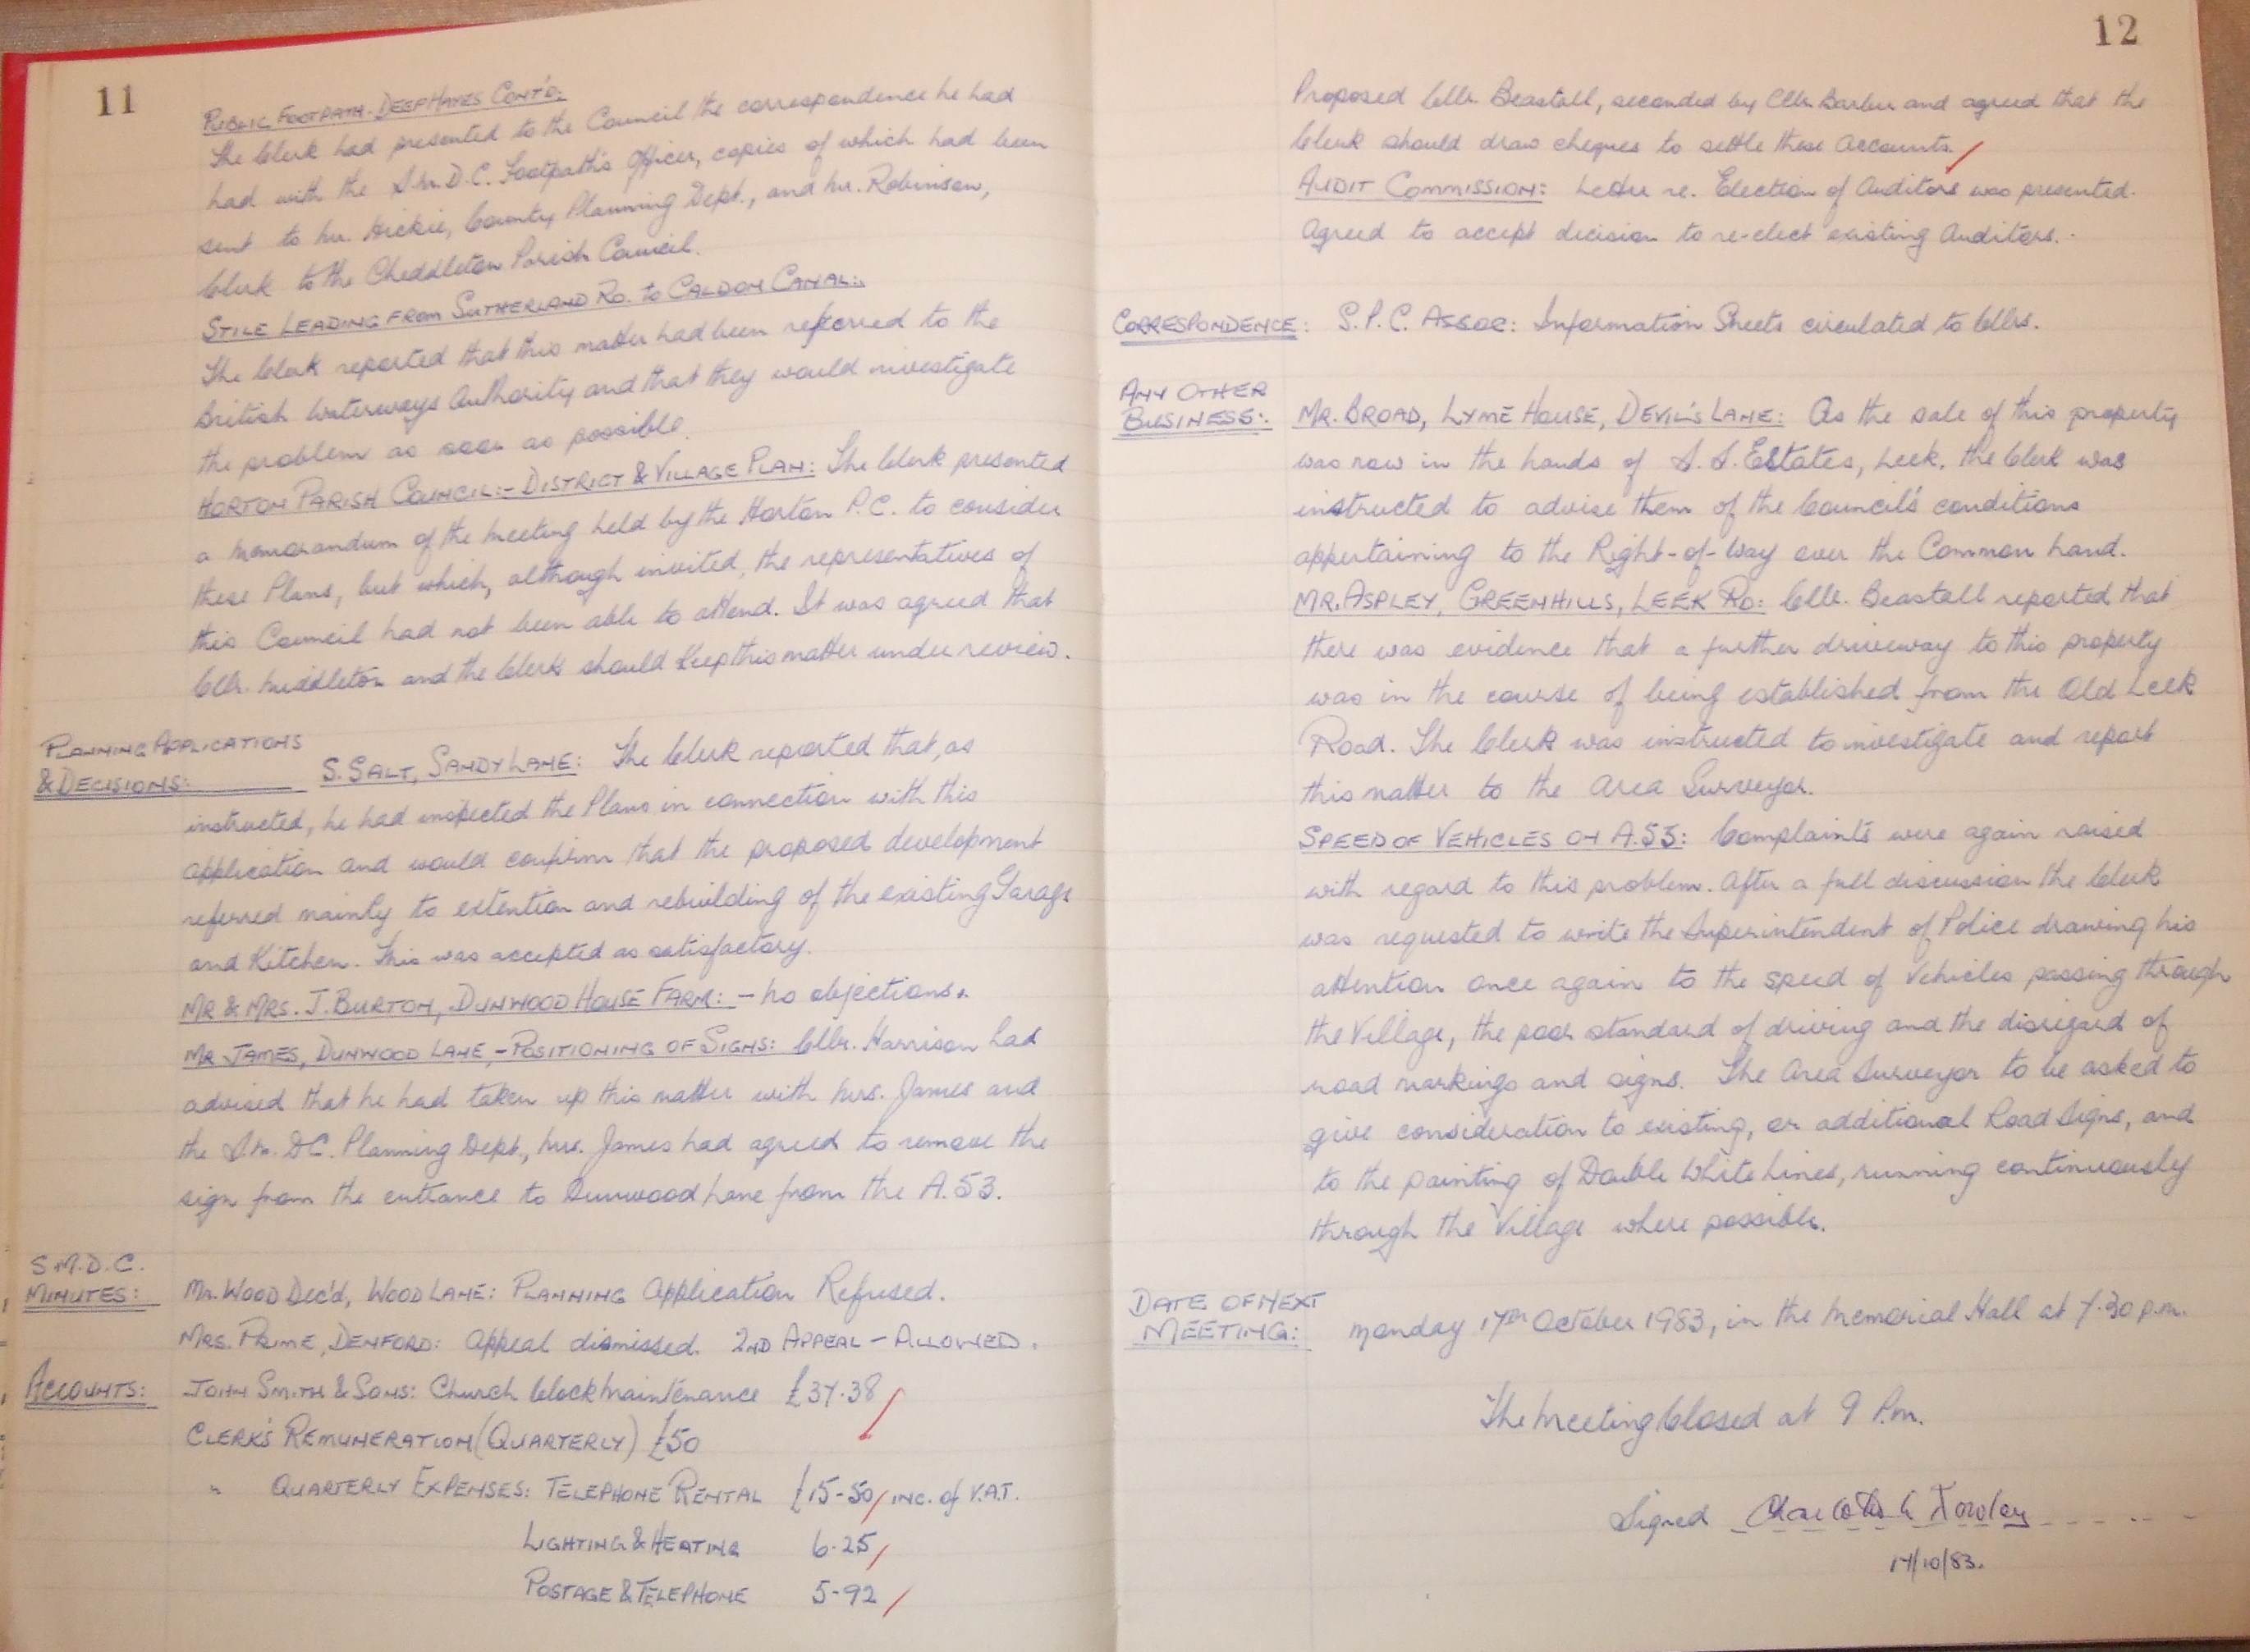 11
PUBLIC FOOTPATH - DEEPHAYES CONT'D:
The Clerk had presented to the Council the correspondence he had
had with the S.M.D.C. Footpath's Officer, copies of which had been
sent to Mr. Hickie, County Planning Dept., and Mr. Robinson,
Clerk to the Cheddleton Parish Council.
STILE LEADING FROM SUTHERLAND RD. to CALDON CANAL:
The Clerk reported that this matter had been referred to the
British Waterways Authority and that they would investigate
the problem as soon as possible.
HORTON PARISH COUNCIL:- DISTRICT & VILLAGE PLAN: The Clerk presented
a Memorandum of the Meeting held by the Horton P.C. to consider
these Plans, but which, although invited, the representatives of
this Council had not been able to attend. It was agreed that
Cllr. Middleton and the Clerk should keep this matter under review.
PLANNING APPLICATIONS
& DECISIONS: S. SALT, SANDY LANE: The Clerk reported that, as
instructed, he had inspected the Plans in connection with this
application and would confirm that the proposed development
referred mainly to extention and rebuilding of the existing Garage
and Kitchen. This was accepted as satisfactory.
MR & MRS. J. BURTON, DUNWOOD HOUSE FARM: - No objections.
MR JAMES, DUNWOOD LANE, - POSITIONING OF SIGNS: Cllr. Harrison had
advised that he had taken up this matter with Mrs. James and
the S.M.D.C. Planning Dept., Mrs. James had agreed to remove the
sign from the entrance to Dunwood Lane from the A.53.
S.M.D.C.
MINUTES: Mr. WOOD Dec'd, WOOD LANE: PLANNING Application Refused.
MRS. PRIME, DENFORD: Appeal dismissed. 2ND APPEAL - ALLOWED.
ACCOUNTS: JOHN SMITH & SONS: Church Clock Maintenance £37.38
CLERK'S REMUNERATION (QUARTERLY) £50
" QUARTERLY EXPENSES: TELEPHONE RENTAL £15-50 INC. of V.A.T.
LIGHTING & HEATING 6.25
POSTAGE & TELEPHONE 5-92
12
Proposed Cllr. Beastall, seconded by Cllr. Barber and agreed that the
Clerk should draw cheques to settle these Accounts.
AUDIT COMMISSION: Letter re. Election of Auditors was presented.
Agreed to accept decision to re-elect existing Auditors.
CORRESPONDENCE: S.P.C. ASSOC: Information Sheets circulated to Cllrs.
ANY OTHER
BUSINESS: MR. BROAD, LYME HOUSE, DEVIL'S LANE: As the sale of this property
was now in the hands of S.S. Estates, Leek, the Clerk was
instructed to advise them of the Council's conditions
appertaining to the Right-of-Way over the Common Land.
MR. ASPLEY, GREENHILLS, LEEK RD: Cllr. Beastall reported that
there was evidence that a further driveway to this property
was in the course of being established from the Old Leek
Road. The Clerk was instructed to investigate and report
this matter to the Area Surveyor.
SPEED OF VEHICLES ON A.53: Complaints were again raised
with regard to this problem. After a full discussion the Clerk
was requested to write the Superintendent of Police drawing his
attention once again to the speed of Vehicles passing through
the Village, the poor standard of driving and the disregard of
road markings and signs. The Area Surveyor to be asked to
give consideration to existing, or additional Road Signs, and
to the painting of Double White Lines, running continuously
through the Village where possible.
DATE OF NEXT
MEETING: Monday 17th October 1983, in the Memorial Hall at 7.30 p.m.
The Meeting Closed at 9 P.m.
Signed
17/10/83.